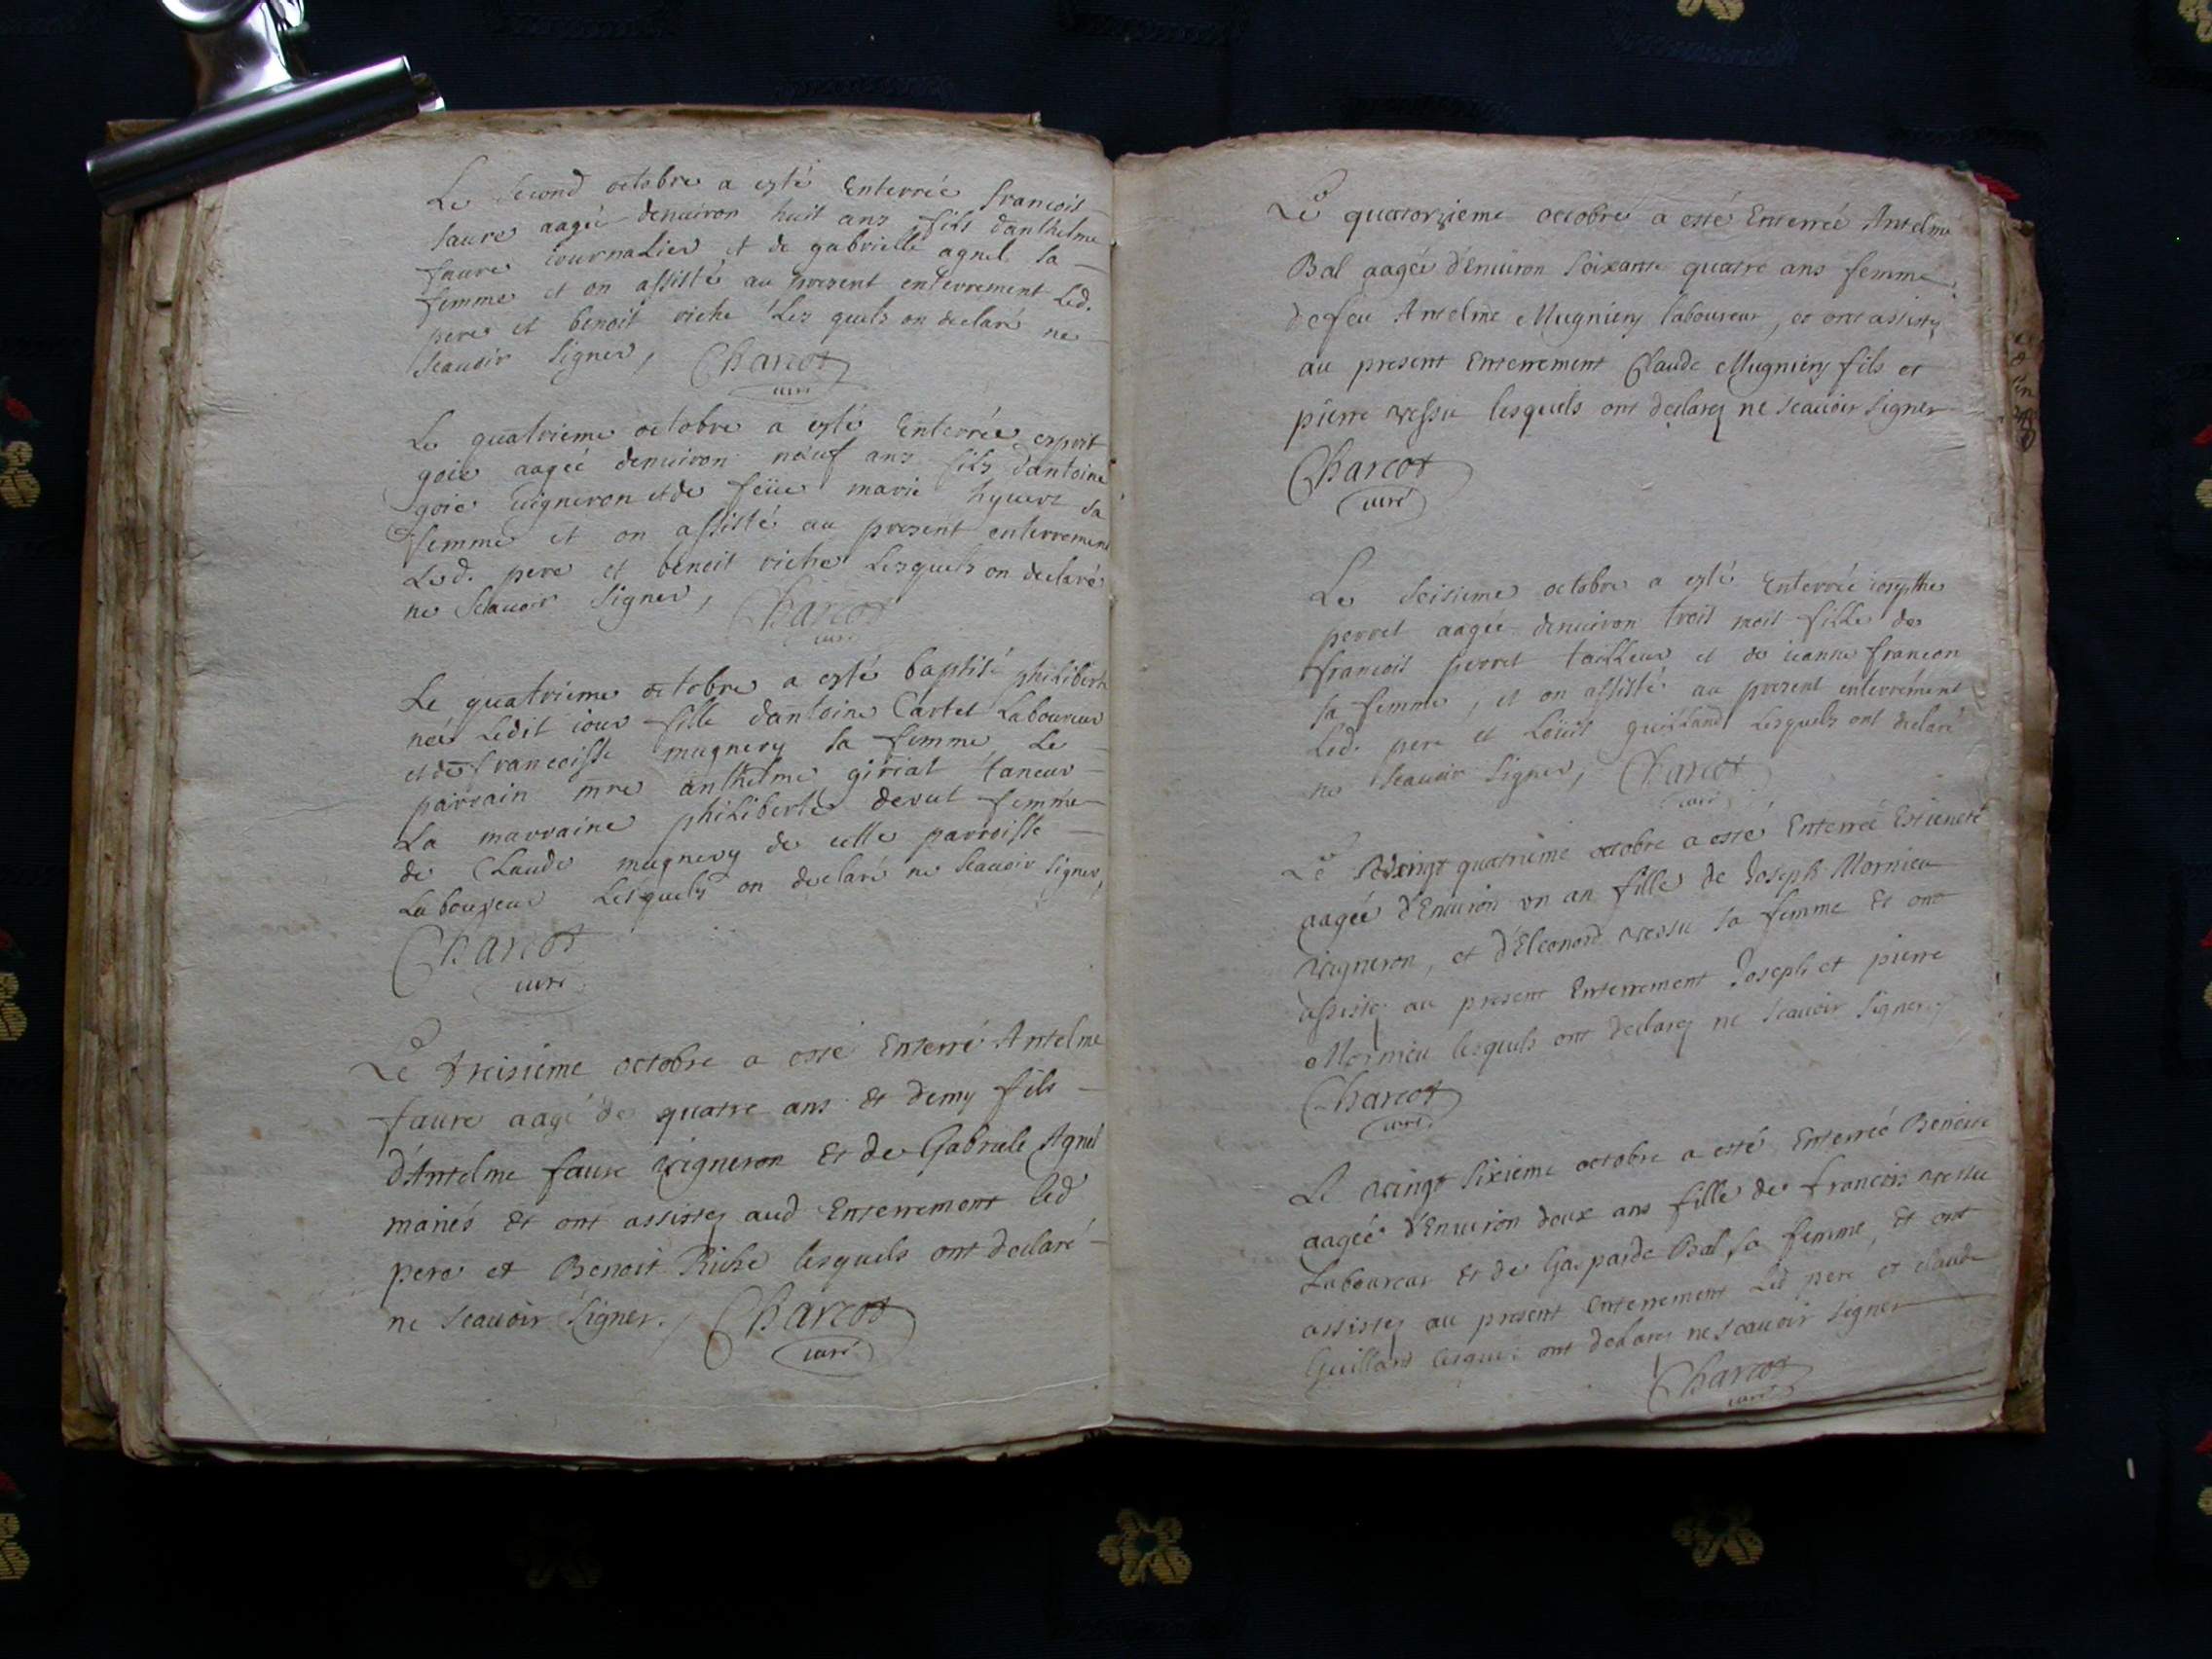 Le second octobre a esté Enterrée francois
faure aagée denuiron huit ans fils danthelme
faure journalier et de gabrielle agnel sa
femme et on assisté au present enterrement Led.
pere et benoit riche Les quels on declaré ne
scauoir signer, Charcot
curé
Le quatrieme octobre a esté Enterrée esprit
goie aagée denuiron neuf ans fils dantoine
goie vigneron et de feüe marie
femme et on assisté au present enterrement
Led. pere et benoit riche Lesquels on declaré
ne scauoir signer, Charcot
curé
Le quatrieme octobre a esté baptisé philiberte
née Ledit iour fille dantoine Cartet Laboureur
et de francoisse mugnery sa femme Le
parrain mre anthelme girriat taneur
La marraine philiberte derut femme
de Claude mugnery de cette parroisse
Laboureur Lesquels on declaré ne scauoir signer,
Charcot
curé
Le treisieme octobre a esté Enterré Antelme
faure aagé de quatre ans et demy fils
d'Antelme faure vigneron Et de Gabriele Agnel
mariés Et ont assistez aud Enterrement led
pere et Benoit Riche lesquels ont declaré
ne scauoir signer. Charcot
curé
Le quatorzieme octobre a esté Enterrée Antelme
Bal aagée d'Enuiron soixante quatre ans femme
de feu Antelme Mugniery laboureur, et ont assistez
au present Enterrement Claude Mugniery fils et
pierre vessu lesquels ont declarez ne scauoir signer
Charcot
curé
Le seisieme octobre a esté Enterrée iosepthe
perret aagée denuiron trois mois fille de
francois perret tailleur et de ieanne francon
sa femme, et on assisté au present enterrement
Led. pere et Loüis guilland Lesquels ont declaré
ne scauoir signer, Charcot
curé
Le vingt quatrieme octobre a esté Enterrée Estienete
aagée d'Enuiron vn an fille de Joseph Mornieu
vigneron, et d'Eleonord vessu sa femme Et ont
assistez au present Enterrement Joseph et pierre
Mornieu lesquels ont declarez ne scauoir signer
Charcot
curé
Le vingt sixieme octobre a esté Enterreé Benoite
aagée d'Enuiron deux ans fille de francois vessu
Laboureur Et de Gasparde Bal sa femme, Et ont
assistez au present Enterrement Led pere et claude
Guilland lesquels ont declarez ne scauoir signer
Charcot
curé